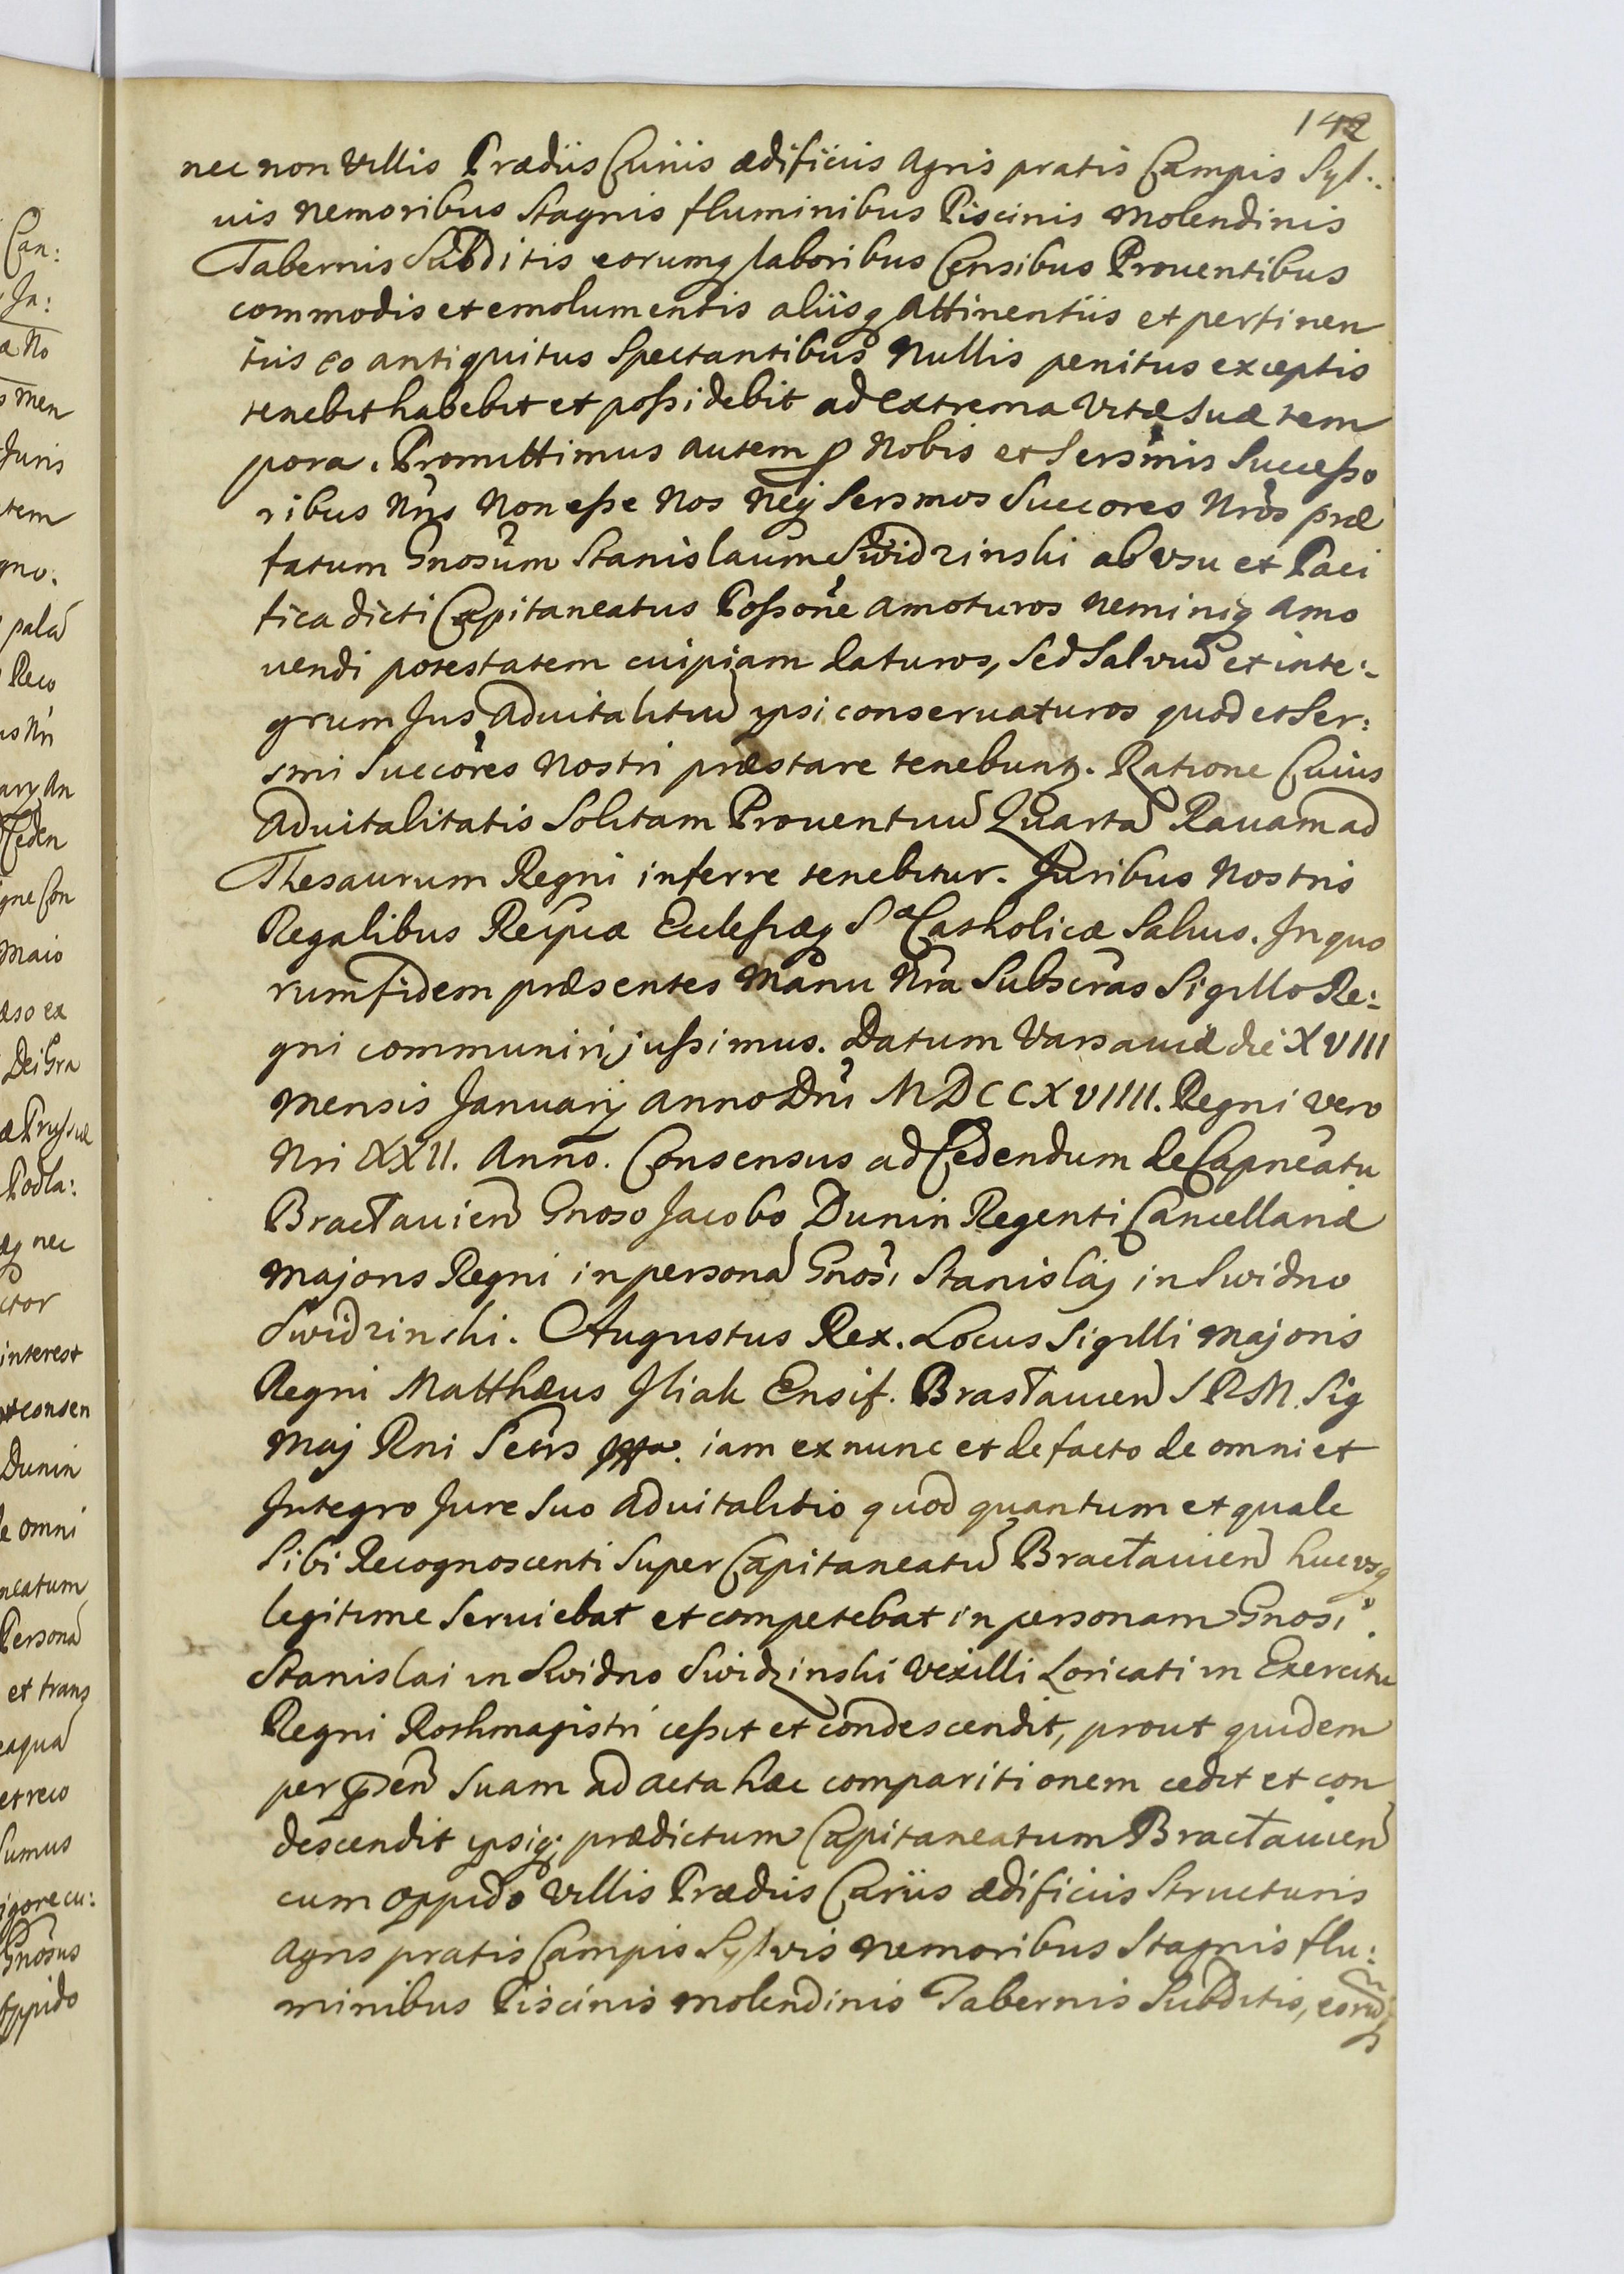 142
nec non Villis Prædiis Curiis ædificiis Agris pratis Campis Syl:
uis Nemoribus Stagnis fluminibus Piscinis Molendinis
Tabernis Subditis eorumq laboribus Censibus Prouentibus
commodis et emolumentis aliisq Attinentiis et pertinen
tiis eo antiquitus Spectantibus Nullis penitus exceptis
tenebit habebit et possidebit ad extrema Vitæ suæ tem
pora. Promittimus autem p Nobis et Sersmis Successo
ribus Nris Non esse Nos Neq Sersmos Succores Nros præ
fatum Gnosum Stanislaum Swidzinski ab Vsu et Paci
fica dicti Capitaneatus Possone amoturos Neminiq Amo
uendi potestatem cuipiam daturos, Sed Salvum et inte:
grum Jus Aduitalitium ipsi conseruaturos quod et Ser:
smi Succores Nostri præstare tenebunt. Ratione Cuius
Aduitalitatis Solitam Prouentuum Quartam Rauam ad
Thesaurum Regni inferre tenebitur. Juribus Nostris
Regalibus Reipcæ Eclesiæq Sæ Catholicæ Saluis. In quo
rum fidem præsentes Manu Nra Subscras Sigillo Re:
gni communiri jussimus. Datum Varsauiæ die XVIII
Mensis Januarij Anno Dni MDCCXVIIII. Regni Vero
Nri XXII. Anno. Consensus ad Cedendum de Capneatu
Bractauien Gnoso Jacobo Dunin Regenti Cancellariæ
Majoris Regni in personam Gnosi Stanislaj in Swidno
Swidzinski. Augustus Rex. Locus Sigilli Majoris
Regni Matthæus Ensif. Brastauien S R M. Sig
Maj Rni Secrs iam ex nunc et de facto de omni et
Integro Jure Suo Aduitalitio quod quantum et quale
Sibi Recognoscenti Super Capitaneatu Bractauien hucusq
legitime Seruiebat et competebat in personam Gnosi
Stanislai in Swidno Swidzinski Vexilli Loricati in Exercitu
Regni Rothmagistri cessit et condescendit, prout quidem
per psen Suam ad acta hæc comparitionem cedit et con
descendit ipsiq; prædictum Capitaneatum Bractauien
cum Oppido Villis Prædiis Curiis ædificiis Structuris
Agris pratis Campis Sylvis Nemoribus Stagnis flu:
minibus Piscinis Molendinis Tabernis Subditis, eorumq